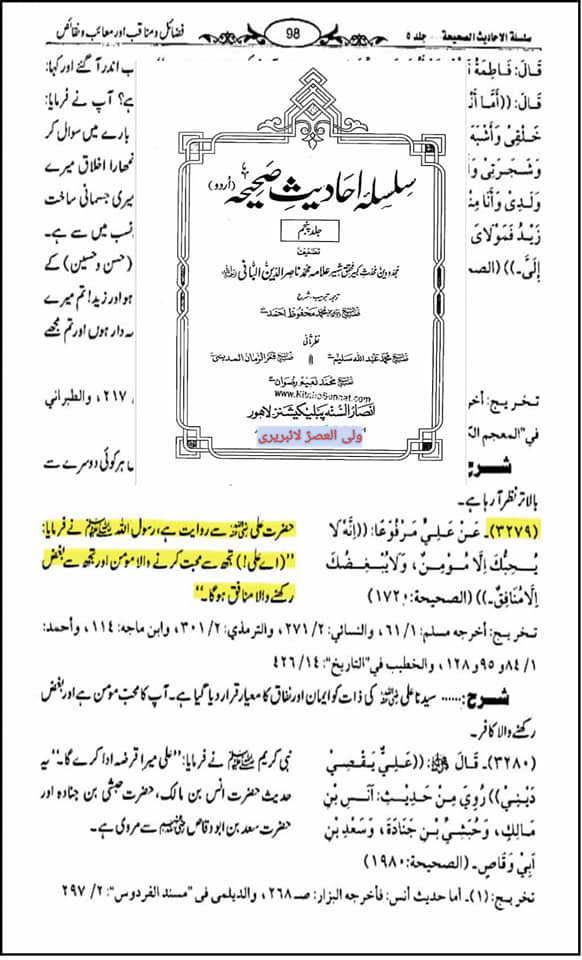 سلسلة الاحاديث الصحيحة — جلد ۵
98
فضائل و مناقب اور معائب و نقائص
قَالَ: فَاطِمَةُ
قَالَ: ((أَمَّا
خَلْقِيْ وَأَشْبَهَ
وَشَجَرَتِيْ
وَلَدِيْ وَأَنَا
زَيْدُ فَمَوْلَايَ
إِلَيَّ.))
اندر آ گئے اور کہا:
ہے؟ آپ نے فرمایا:
بارے میں سوال کر
تمھارا اخلاق میرے
میری جسمانی ساخت
نسب میں سے ہے۔
(حسن و حسین) کے
ہو اور زید! تم میرے
دار ہوں اور تم مجھے
سلسلہ احادیثِ صحیحہ (اُردو)
جلد پنجم
تصنیف
علامہ محمد ناصر الدین البانی
ترجمہ، تبویب، شرح
محمد محفوظ احمد
نظرثانی
محمد عبداللہ سلیم
قمر الزمان المدینی
محمد نعیم رضوان
www.KitaboSunnat.com
انصار السنہ پبلیکیشنز لاہور
ولی العصرؑ لائبریری
تخريج:
٢١٧، والطبراني
في "المعجم
شرح
ہر کوئی دوسرے سے
بالاتر نظر آ رہا ہے۔
(۳۲۷۹)۔ عَنْ عَلِيٍّ مَرْفُوْعًا: ((إِنَّهُ لَا
يُحِبُّكَ إِلَّا مُؤْمِنٌ، وَلَا يُبْغِضُكَ
إِلَّا مُنَافِقٌ.)) (الصحيحة: ۱۷۲۰)
حضرت علی رضی اللہ عنہ سے روایت ہے، رسول اللہ ﷺ نے فرمایا:
"(اے علی!) تجھ سے محبت کرنے والا مومن اور تجھ سے بغض
رکھنے والا منافق ہو گا۔"
تخريج: أخرجه مسلم: ١/ ٦١، والنسائي: ٢/ ٢٧١، والترمذي: ٢/ ٣٠١، وابن ماجه: ١١٤، وأحمد:
١/ ٨٤ و ٩٥ و ١٢٨، والخطيب في "التاريخ": ١٤/ ٤٢٦
شرح: ...... سیدنا علی رضی اللہ عنہ کی ذات کو ایمان اور نفاق کا معیار قرار دیا گیا ہے۔ آپ کا محب مومن ہے اور بغض
رکھنے والا کافر۔
(۳۲۸۰)۔ قَالَ ﷺ: ((عَلِيٌّ يَقْضِيْ
دَيْنِيْ)) رُوِيَ مِنْ حَدِيْثِ: أَنَسِ بْنِ
مَالِكٍ، وَحُبْشِيِّ بْنِ جَنَادَةَ، وَسَعْدِ بْنِ
أَبِيْ وَقَّاصٍ۔ (الصحيحة: ۱۹۸۰)
نبی کریم ﷺ نے فرمایا: "علی میرا قرضہ ادا کرے گا۔" یہ
حدیث حضرت انس بن مالک، حضرت حبشی بن جنادہ اور
حضرت سعد بن ابو وقاص رضی اللہ عنہم سے مروی ہے۔
تخريج: (١)۔ أما حديث أنس: فأخرجه البزار: صـ ٢٦٨، والديلمي في "مسند الفردوس": ٢/ ٢٩٧